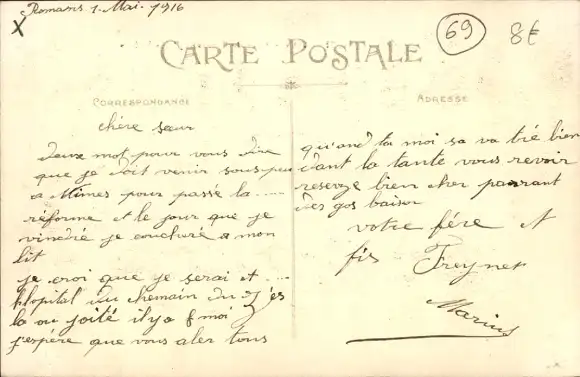 Romans 1. Mai. 1916
X
69
8€
CARTE POSTALE
CORRESPONDANCE
ADRESSE
chère sœur
deux mot pour vous dire
que je doit venir sous peu
a Nimes pour passé la .....
réforme et le jour que je
vindré je coucheré a mon
lit
je croi que je serai et ....
hlopital du chemain du
la ou joité il y a 8 moi
j'espère que vous aler tous
quand ta moi sa va tré bien
dant la tante vous revoir
reservze bien cher parrant
des gos baiser
votre fére et
fis Freyner
Marius